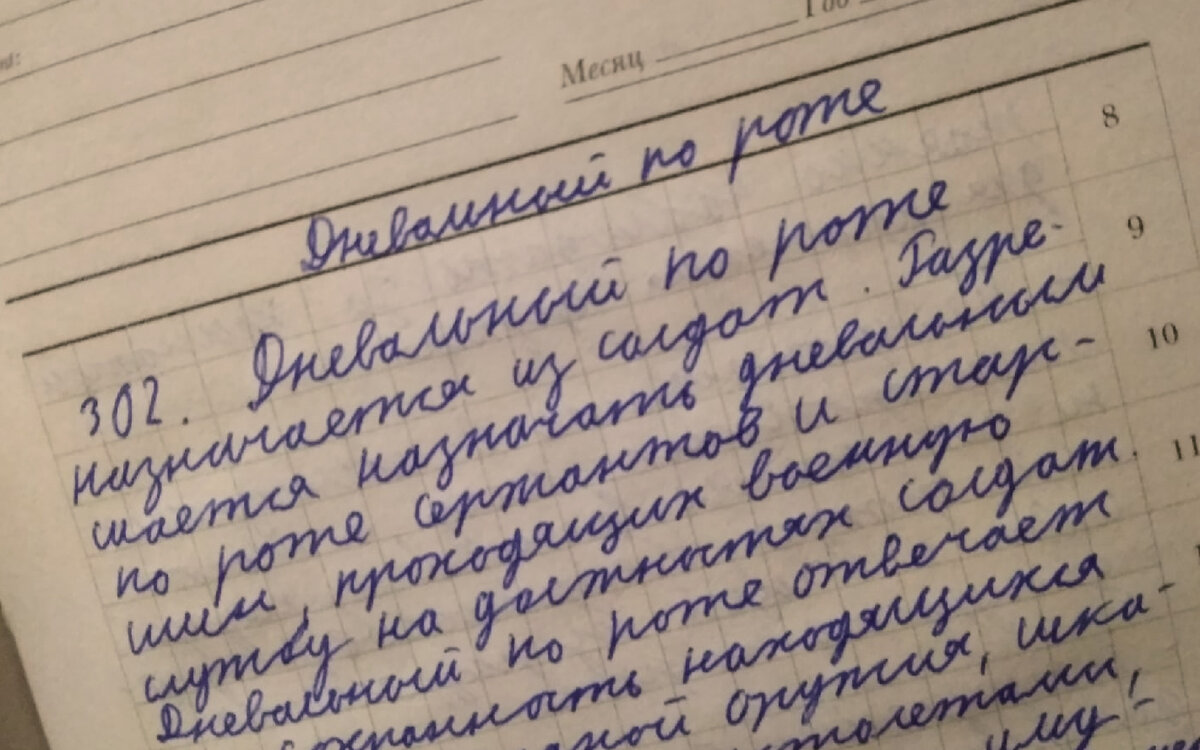 Месяц Год
Дневальный по роте
8
302. Дневальный по роте
9
назначается из солдат. Разре-
шается назначать дневальным
10
по роте сержантов и стар-
шин, проходящих военную
11
службу на должностях солдат.
Дневальный по роте отвечает
находящихся
оружия, шка-